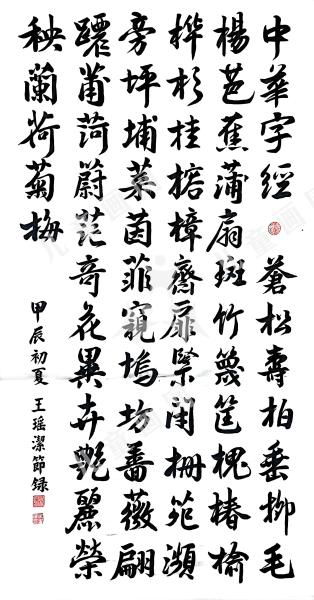 中華字經 蒼松壽柏垂柳毛
楊芭蕉蒲扇斑竹篾筐槐椿榆
樺杉桂榙樟齋扉緊閉柵笵瀕
旁坪埔菜茵菲窺塢坊薔薇翩
躚莆菏蔚范奇花異卉艷麗榮
秧蘭荷菊梅
甲辰初夏王瑶潔節録